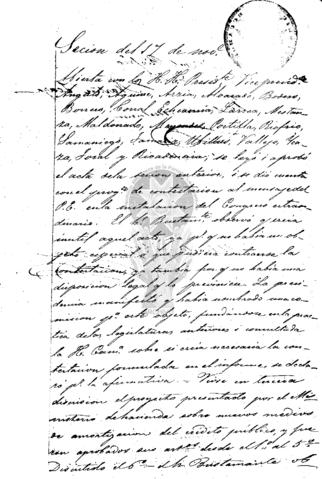 Secion del 17 de nov.e
Abierta con los H. H. Presid.te Vicepresid.te
Angulo, Aguirre, Arzia, Alvarado, Borrero,
Borrero, Corral, Echeverria, Larrea, Mestan-
za, Maldonado, Portilla, Riofrio,
Samaniego, Vallejo,
Toral y Rivadeneira; se leyó i aprobó
el acta dela secion anterior, i se dio cuenta
con el proy.to de contestacion al mensaje del
P. E. en la instalacion del Congreso estraor-
dinario. El h. Bustam.te observó q. creia
inutil aquel acto ya p.r q. no habia un ob-
jeto especial á que pudiera contraerse la
contestacion, ya tambien por q. no habia una
disposicion legal q. la previniera. La presi-
dencia manifestó q. habia nombrado una co-
mision p.a este objeto, fundandose en la prac-
tica de las legislaturas anteriores i consultada
la H. Cam.a sobre si creia necesaria la con-
testacion formulada en el informe, se decla-
ró p.r la afirmativa. - Vióse en tercera
discusion el proyecto presentado por el Mi-
nisterio de hacienda sobre nuevos medios
de amortizacion del crédito público, y fue-
ron aprobados sus art.os desde el 1.o al 5.o
Discutido el 6.o - el h. Bustamante ob